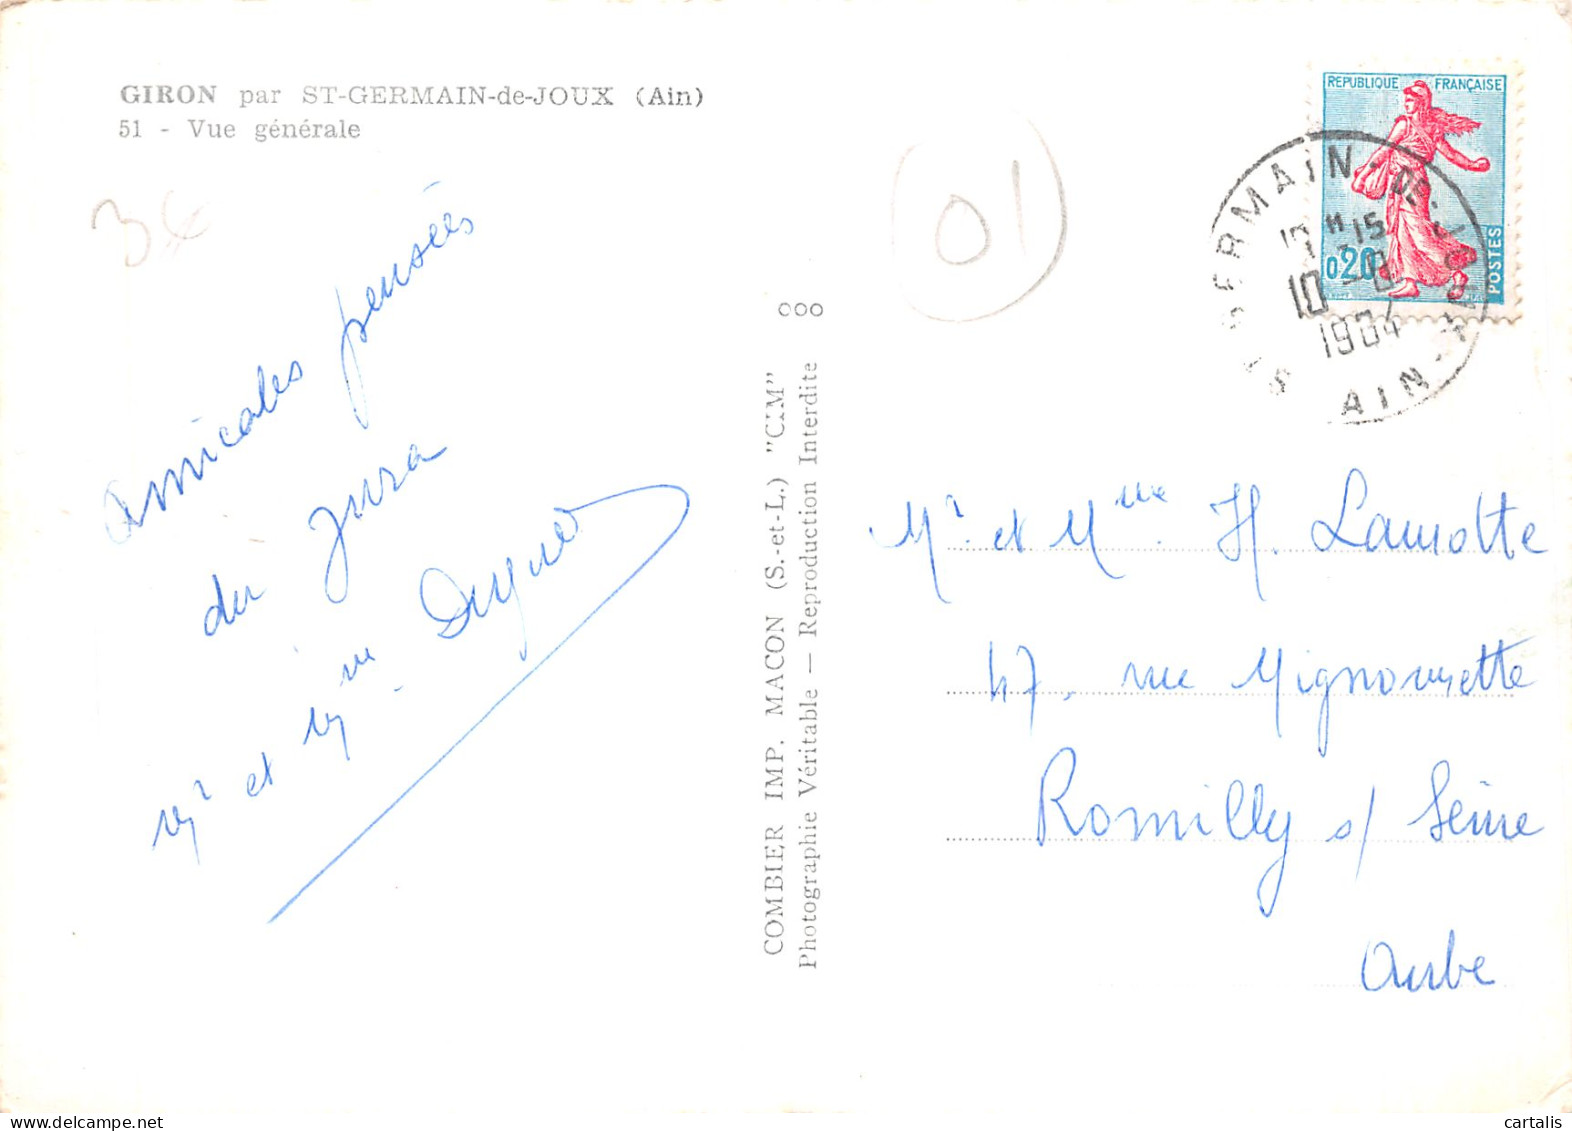 GIRON par ST-GERMAIN-de-JOUX (Ain)
51 - Vue générale
3€
amicales pensées
du Jura
Mr et Mme
COMBIER IMP. MACON (S.-et-L.) "CIM"
Photographie Véritable — Reproduction Interdite
01
REPUBLIQUE FRANÇAISE
0,20
POSTES
ST GERMAIN-DE-JOUX
AIN
15
10 - 8
Mr et Mme H. Lamotte
47, rue Mignonnette
Romilly s/ Seine
Aube
cartalis